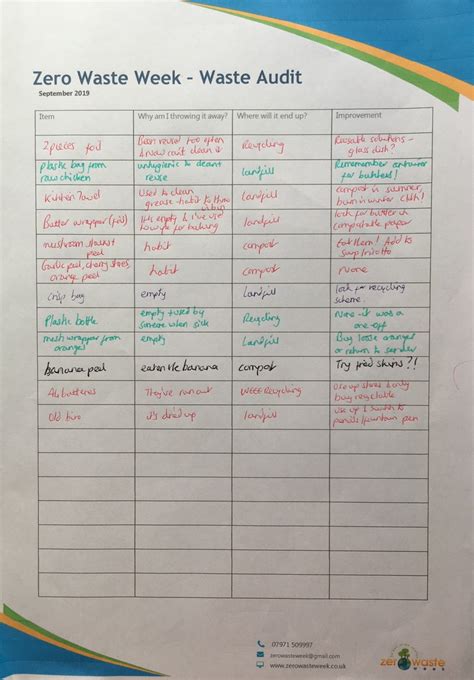 Zero Waste Week - Waste Audit
September 2019
Item Why am I throwing it away? Where will it end up? Improvement
2 pieces foil Been reused too often & now can't clean it Recycling Reusable solutions - glass dish?
plastic bag from raw chicken unhygienic to clean & reuse landfill Remember container for butchers!
Kitchen Towel Used to clean grease habit to throw in bin landfill compost in summer, burn in winter
Butter wrapper (foil) It's empty & I've used for baking landfill look for butter in compostable paper
mushroom stalks & peel habit compost Eat them! Add to soup/risotto
Garlic peel, cherry stones, orange peel habit compost None
crisp bag empty landfill look for recycling scheme
Plastic bottle empty & used by someone when sick Recycling None it was a one-off
mesh wrapper from oranges empty landfill Buy loose oranges or return to sender
banana peel eaten the banana compost Try fried skins?!!
batteries They've run out WEEE Recycling use up stores & only buy rechargeable
Old biro it's dried up landfill use up & switch to pencils/fountain pen
07971 509997
zerowasteweek@gmail.com
www.zerowasteweek.co.uk
zero waste
week